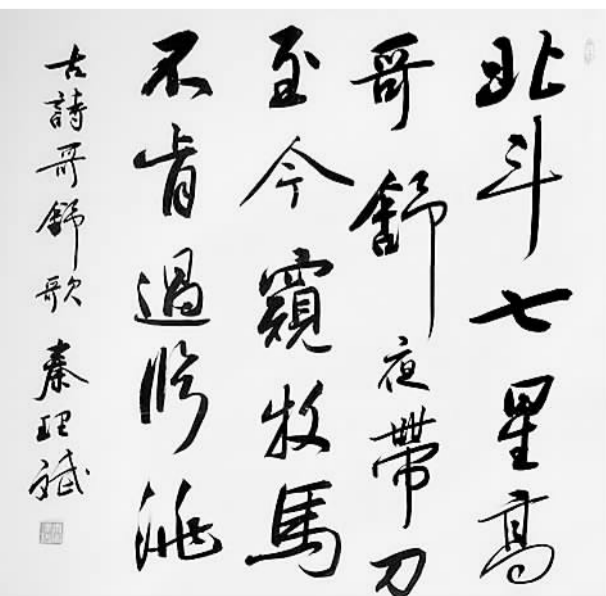 北斗七星高
哥舒夜帶刀
至今窺牧馬
不肯過臨洮
古詩哥舒歌 秦理斌